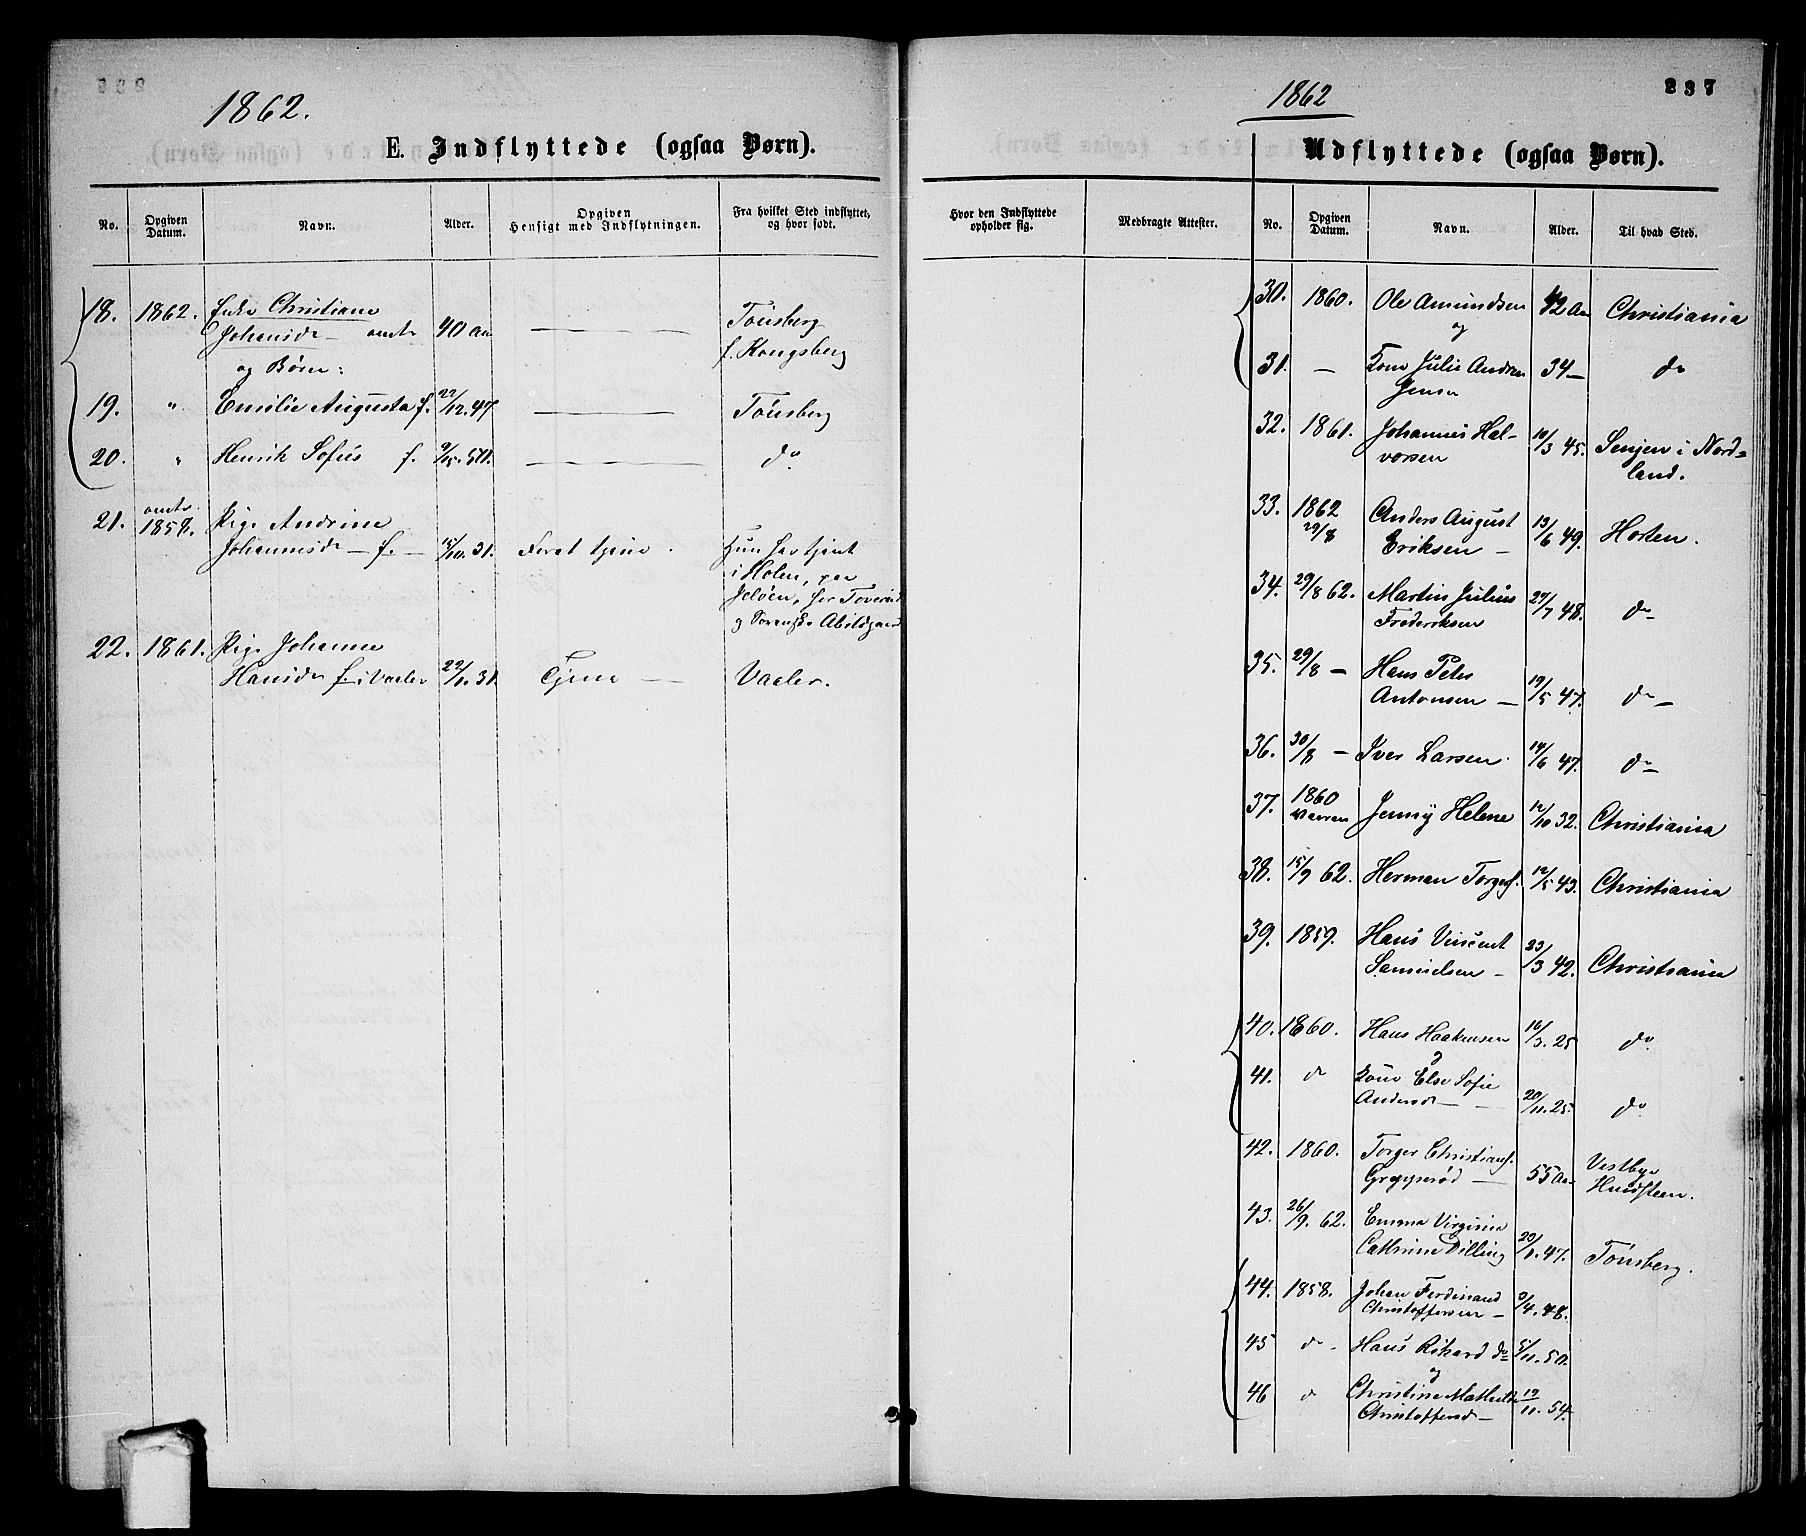 1862.
E. Indflyttede (ogsaa Børn).
No.
Opgiven Datum.
Navn.
Alder.
Opgiven Hensigt med Indflytningen.
Fra hvilket Sted indflyttet, og hvor født.
18. 1862. Enke Christiane 40 Aar Tønsberg
Johansd. omtr f. Kongsberg
og Børn:
19. " Emilie Augusta f. 22/12.47. Tønsberg
20. " Henrik Sofus f. 9/5.50. do
21. omtr 1858. Pige Andrine
Johannesd. f. 15/10.31. For at tjene. Hun har tjent
i Holen, paa
Jeløen, hos
og Abildgaard
22. 1861. Pige Johanne
Hansd. f. i Vaaler 22/1.31. Tjene Vaaler.
1862
237
Udflyttede (ogsaa Børn).
Hvor den Indflyttede opholder sig.
Medbragte Attester.
No.
Opgiven Datum.
Navn.
Alder.
Til hvad Sted.
30. 1860. Ole Amundsen 42 Aar Christiania
og
31. — Kone Julie Andrea 34 — do
Jensen
32. 1861. Johannes Hal- 10/3 45. Senjen i Nord=
vorsen land.
33. 1862 29/8 Anders August 13/6 49. Horten.
Eriksen —
34. 29/8 62. Martin Julius 27/7 48. do —
Frederiksen
35. 29/8 — Hans Peter
Antonsen — 19/5 47. do —
36. 30/8 — Iver Larsen. 14/6 47. do —
37. 1860 Vaaren Jenny Helene 12/10 32. Christiania
38. 15/9 62. Herman Torgers. 12/5 43. Christiania
39. 1859. Hans Vincent 23/3 42. Christiania
Samuelsen —
40. 1860. Hans Haakensen 16/3.25 do
og
41. do Kone Else Sofie
Andersd — 20/11.25. do
42. 1860. Torger Christians. 55 Aar Vestby
— Hvidsteen.
43. 26/9.62. Emma Virginia
Cathrine Dilling 20/1.47. Tønsberg.
44. 1858. Johan Ferdinand
Christoffersen — 3/4.48.
45 do. Hans Rikard do 5/11.50.
og
46 do Christine Mathilde 19/11.54.
Christoffersd —